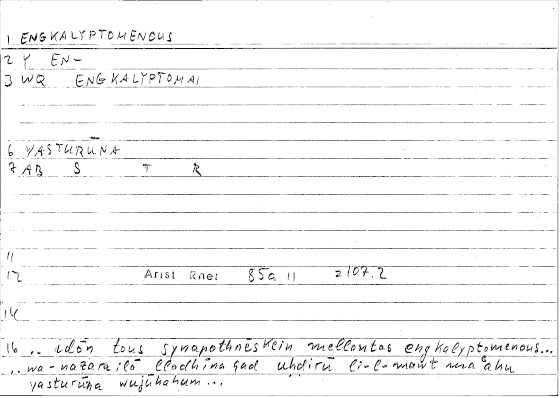 1 ENGKALYPTOMENOUS
2 Y EN-
3 WQ ENGKALYPTOMAI
6 YASTURŪNA
7 AB S T R
11
12 Arist Rhet 85a 11 = 107.2
14
16 .. idōn tous synapothnēskein mellontas engkalyptomenous...
.. wa-naẓara ilā lladhīna qad uḥḍirū li-l-mawt maʿahu
yasturūna wujūhahum...